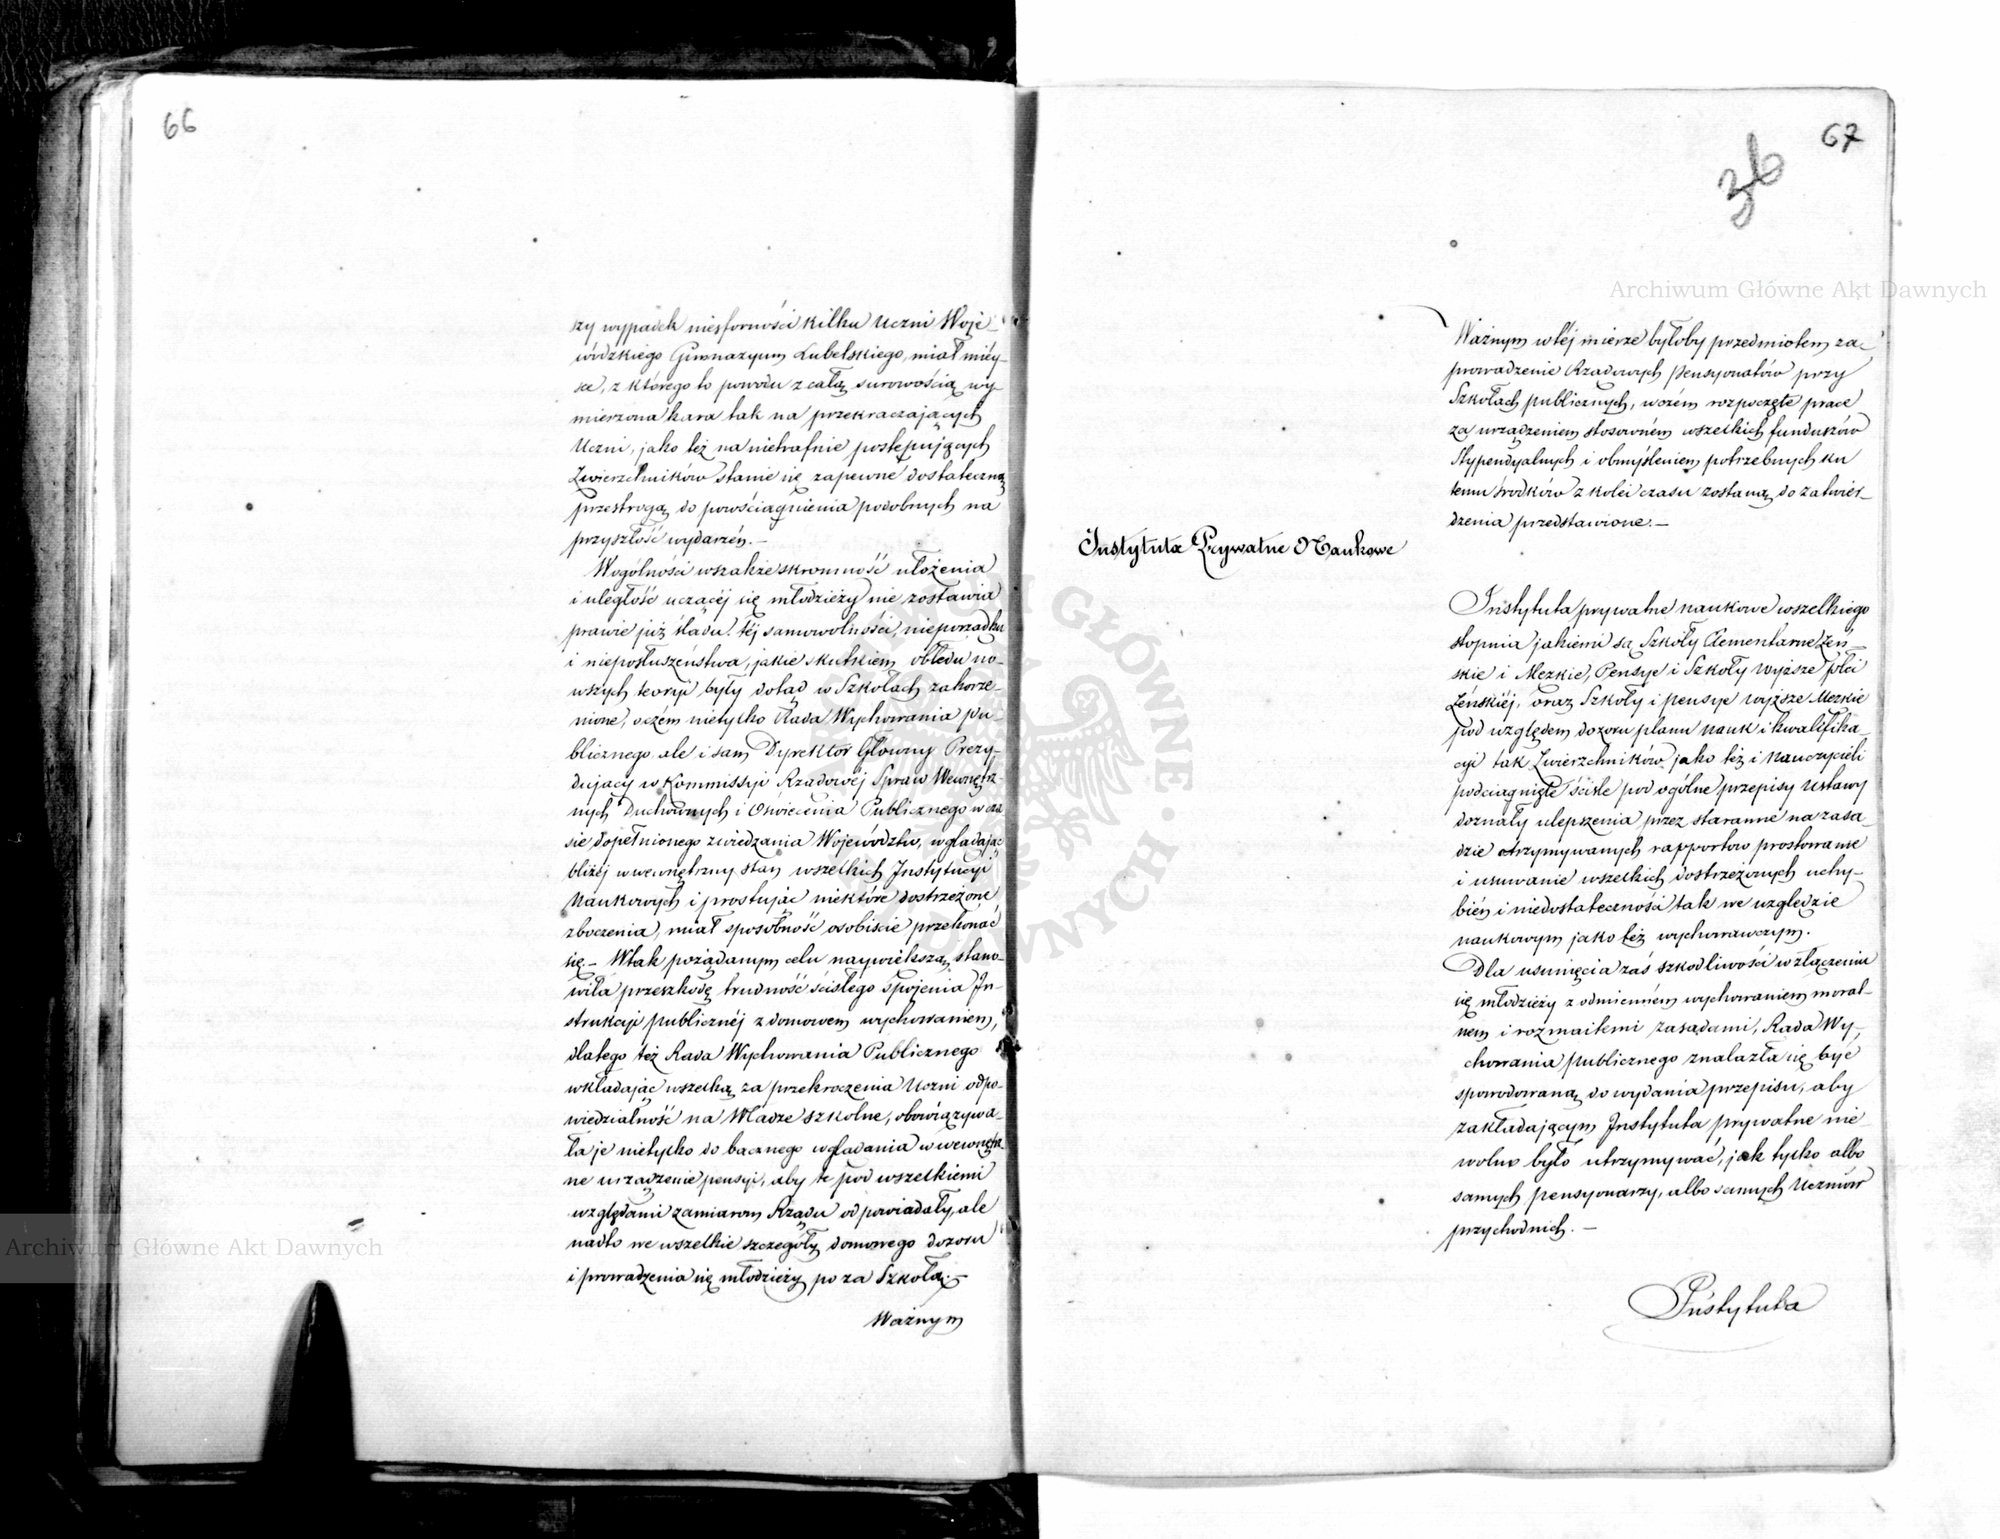 66
szy wypadek niesforności kilku Uczni Woje-
wódzkiego Gimnazyum Lubelskiego, miał miéy-
sce, z którego to powodu z całą surowością wy-
mierzona kara tak na przekraczających
Uczni, jako też na nietrafnie postępujących
Zwierzchników stanie się zapewne dostateczną
przestrogą do powściągnienia podobnych na
przyszłość wydarzeń.-
Wogólności wszakże skromność ułożenia
i uległość uczącéj się młodzieży nie zostawia
prawie już śladu téj samowolności, nieporządku
i nieposłuszeństwa, jakie skutkiem obłędu no-
wszych teoryi były dotąd w Szkołach zakorze-
nione, oczém nietylko Rada Wychowania pu-
blicznego ale i sam Dyrektor Główny Prezy-
dujący w Kommissyi Rządowéj Spraw Wewnętrz-
nych Duchownych i Oświecenia Publicznego w cza
sie dopełnionego zwiedzania Województw, wglądając
bliżéj w wewnętrzny stan wszelkich Instytucyi
Naukowych i prostując niektóre dostrzeżone
zboczenia, miał sposobność osobiście przekonać
się.- Wtak pożądanym celu największą stano-
wiła przeszkodę trudność ścisłego spojenia In-
strukcyi publicznéj z domowem wychowaniem,
dlatego też Rada Wychowania Publicznego
wkładając wszelką za przekroczenia Uczni odpo-
wiedzialność na Władze szkolne, obowiązywa-
ła je nietylko do bacznego wglądania w wewnętrz-
ne urządzenie pensyi, aby te pod wszelkiemi
względami zamiarom Rządu odpowiadały, ale
nadto we wszelkie szczegóły domowego dozoru
i prowadzenia się młodzieży po za Szkołą.-
Ważnym
67
36
Ważnym w téj mierze byłoby przedmiotem za-
prowadzenie Rządowych pensyonatów przy
Szkołach publicznych, wczém rozpoczęte prace
za urządzeniem stosowném wszelkich funduszów
Stypendyalnych i obmyśleniem potrzebnych ku
temu środków z kolei czasu zostaną do zatwier-
dzenia przedstawione.-
Instytuta Prywatne Naukowe
Instytuta prywatne naukowe wszelkiego
stopnia jakiemi są Szkoły Elementarne Żeń-
skie i Mezkie, Pensye i Szkoły wyższe płci
Żeńskiéj, oraz Szkoły i pensye wyższe Mezkie
pod względem dozoru planu nauk i kwalifika-
cyi tak Zwierzchników jako też i Nauczycieli
podciągnięte ściśle pod ogólne przepisy Ustawy
doznały ulepszenia przez staranne na zasa-
dzie otrzymywanych rapportów prostowanie
i usuwanie wszelkich dostrzeżonych uchy-
bień i niedostateczności tak we względzie
naukowym jako też wychowawczym.
Dla usunięcia zaś szkodliwości w złączeniu
się młodzieży z odmienném wychowaniem moral-
nem i rozmaitemi zasadami, Rada Wy-
chowania publicznego znalazła się być
spowodowaną do wydania przepisu, aby
zakładającym Instytuta prywatne nie
wolno było utrzymywać, jak tylko albo
samych pensyonarzy, albo samych Uczniów
przychodnich.-
Instytuta
Archiwum Główne Akt Dawnych
Archiwum Główne Akt Dawnych